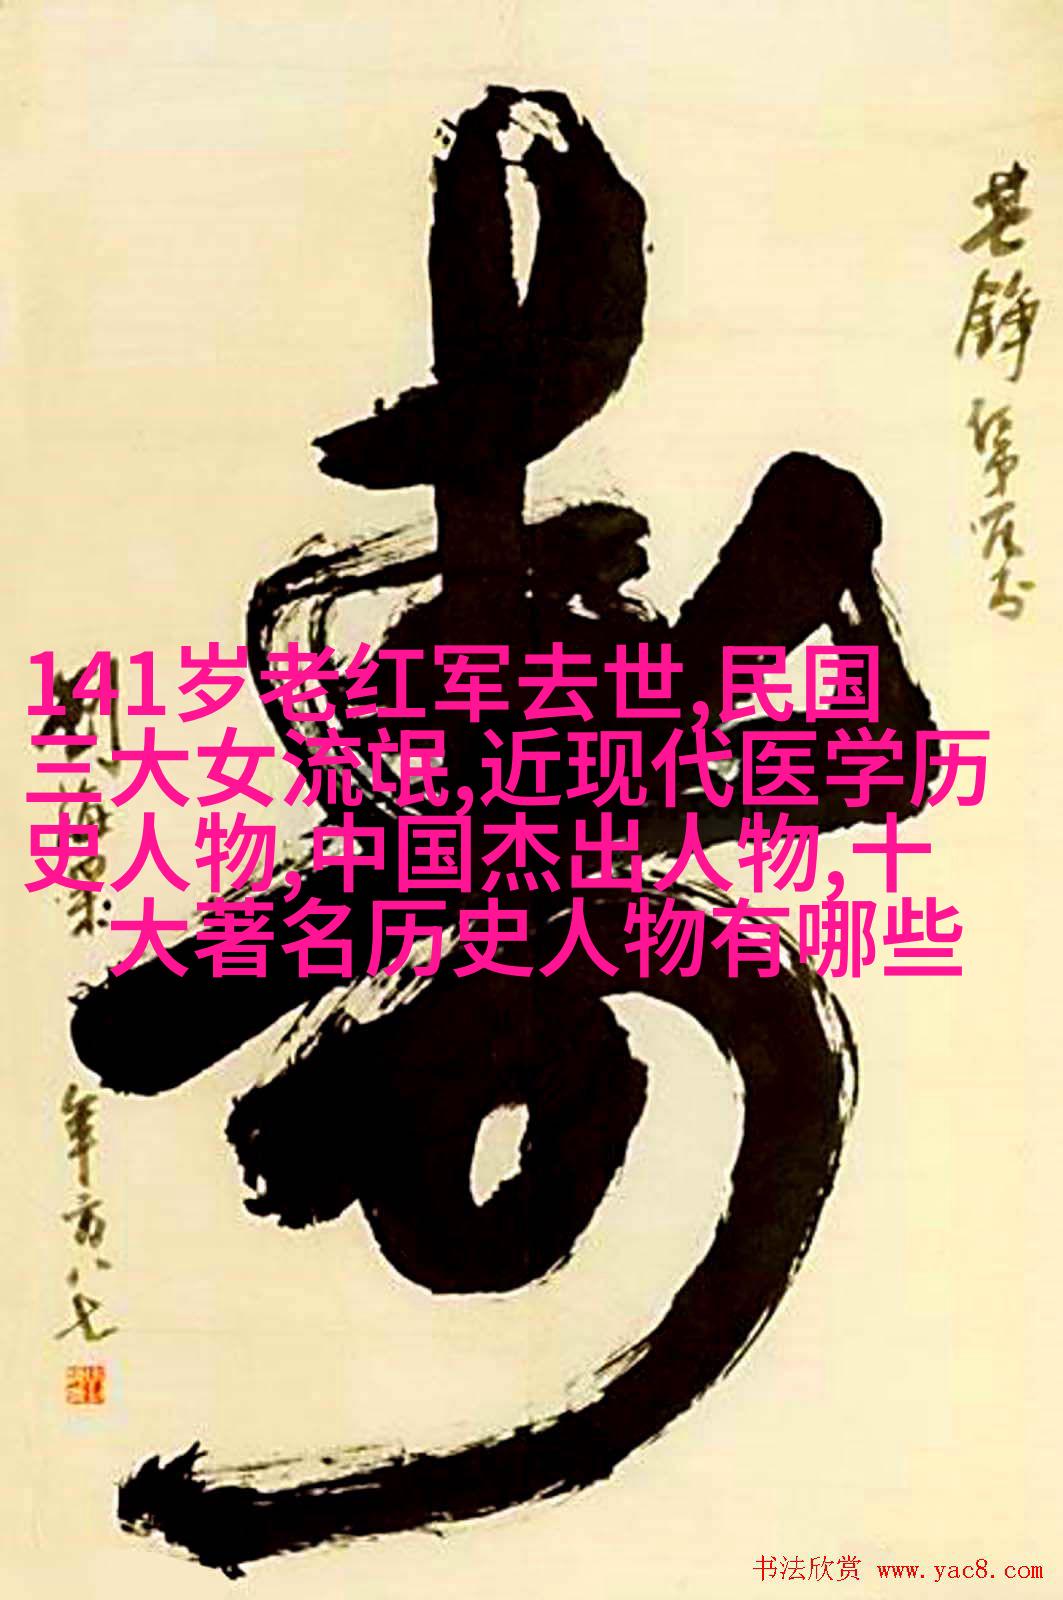 寿
其錚
年方八七
141岁老红军去世,民国
三大女流氓,近现代医学历
史人物,中国杰出人物,十
大著名历史人物有哪些
书法欣赏 www.yac8.com